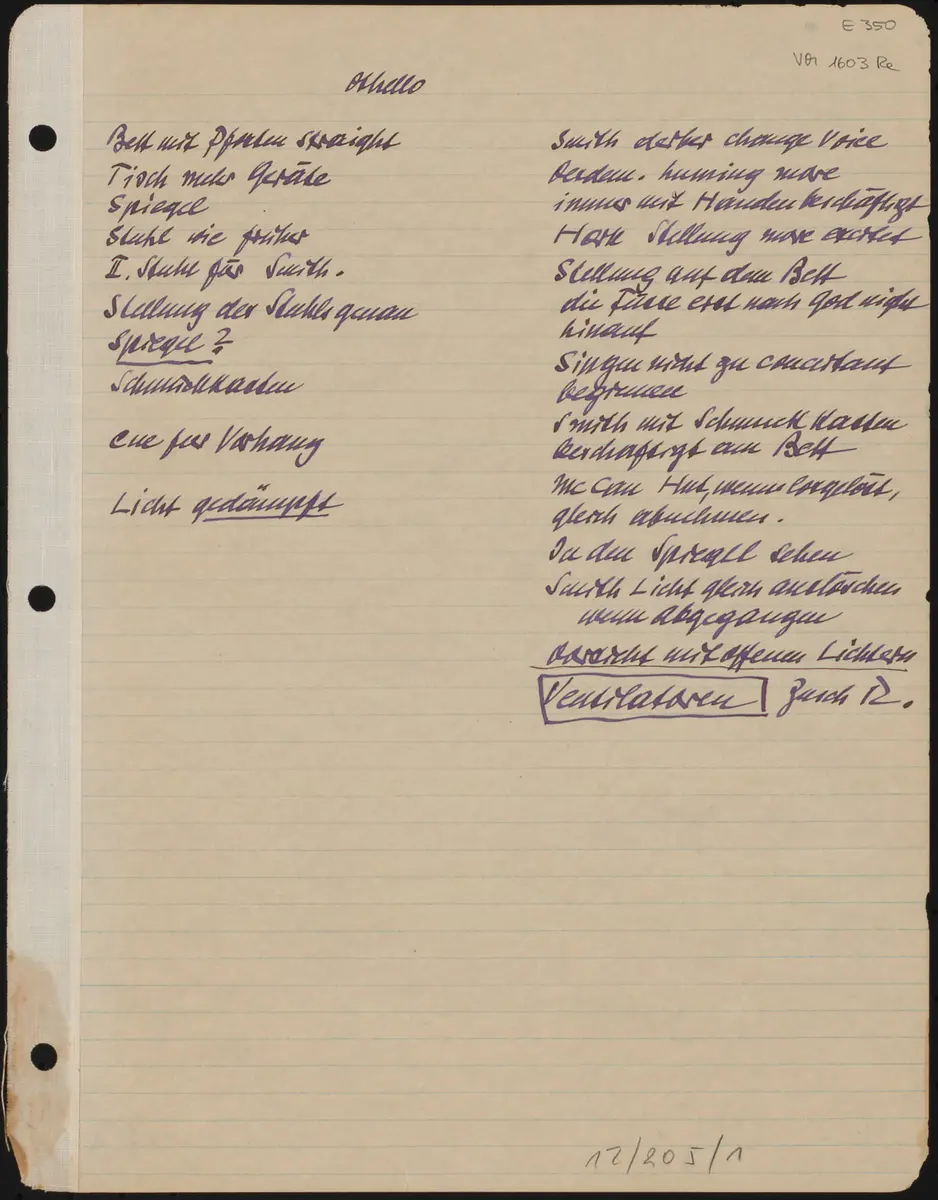 E 350
VM 1603 Re
Othello
Bett mit Pfosten straight
Tisch mehr Geräte
Spiegel
Stuhl wie früher
II. Stuhl für Smith.
Stellung des Stuhls genau
Spiegel?
Schmuckkasten
cue für Vorhang
Licht gedämpft
Smith derber change Voice
huming more
immer mit Händen beschäftigt
Hark Stellung more excited
Stellung auf dem Bett
die Füsse erst nach God night
hinauf
Singen nicht zu concertant
beginnen
Smith mit Schmuck Kasten
beschäftigt am Bett
Mc Can Hut, wenn losgelöst,
gleich abnehmen.
In den Spiegel sehen
Smith Licht gleich auslöschen
wenn abgegangen
Vorsicht mit offenen Lichtern
Ventilatoren Zusch R.
12/205/1